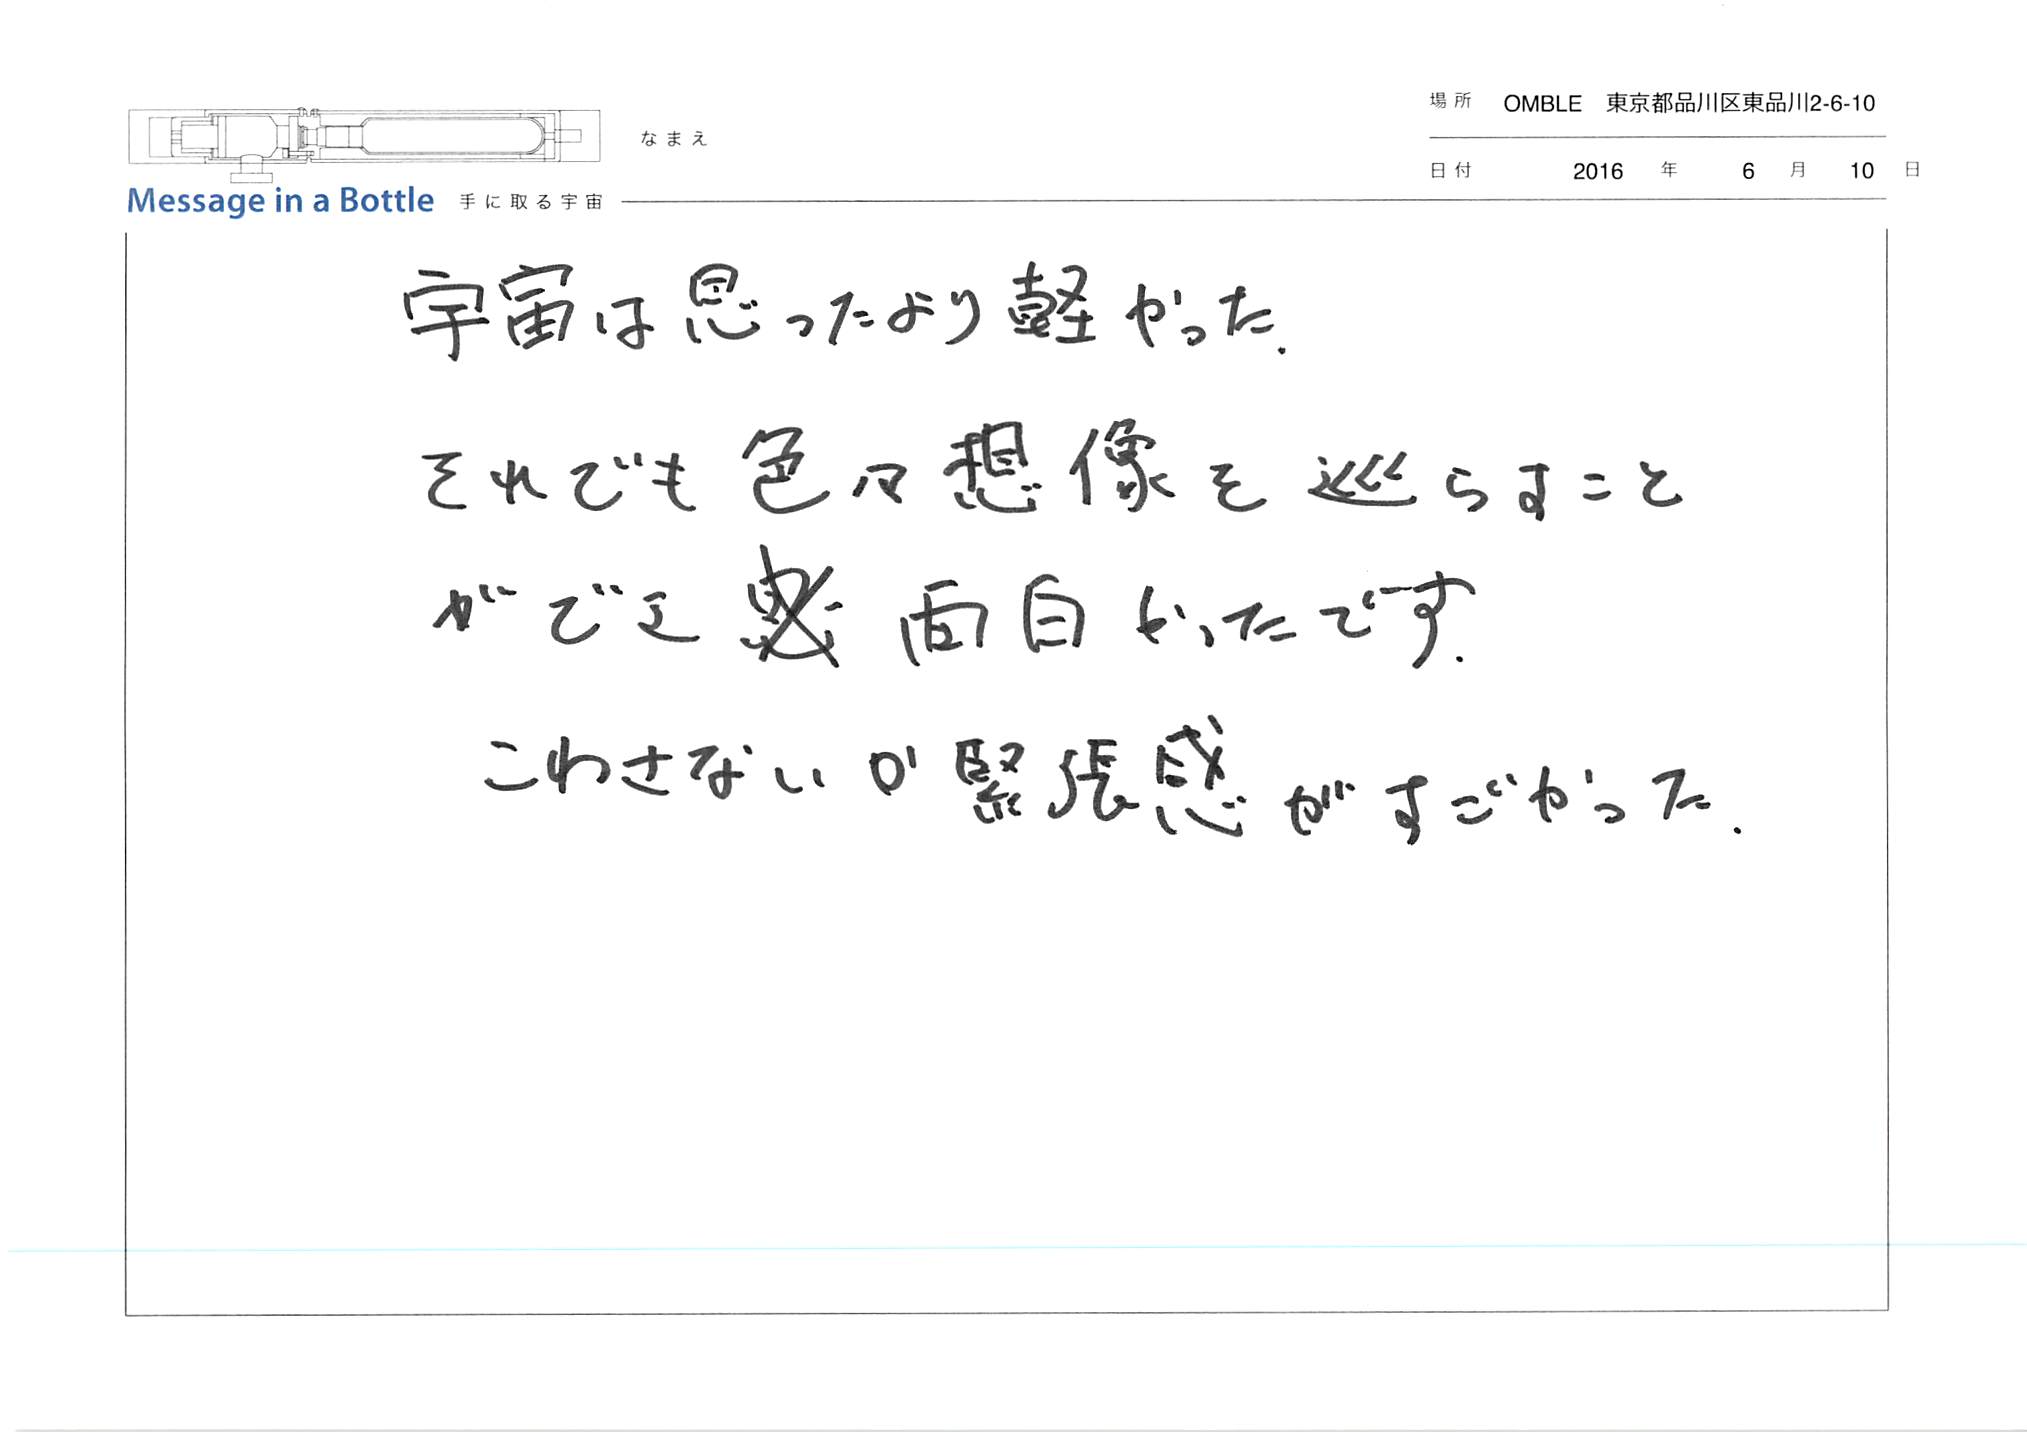 場所 OMBLE 東京都品川区東品川2-6-10
なまえ
日付 2016 年 6 月 10 日
Message in a Bottle 手に取る宇宙
宇宙は思ったより軽かった.
それでも色々想像を巡らすこと
がでえ 面白かったです.
こわさないか緊張感がすごかった.